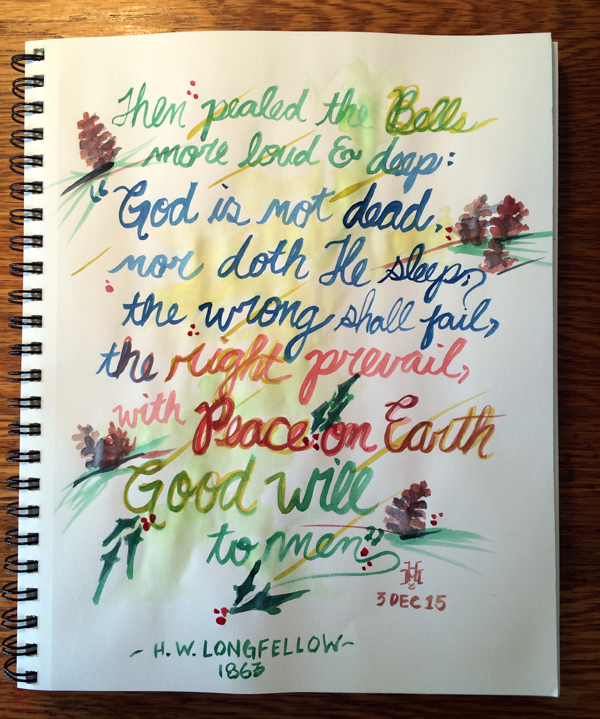 Then pealed the Bells
more loud & deep:
"God is not dead,
nor doth He sleep;
the wrong shall fail,
the right prevail,
with Peace on Earth
Good will
to men"
H
3 DEC 15
- H. W. LONGFELLOW -
1863